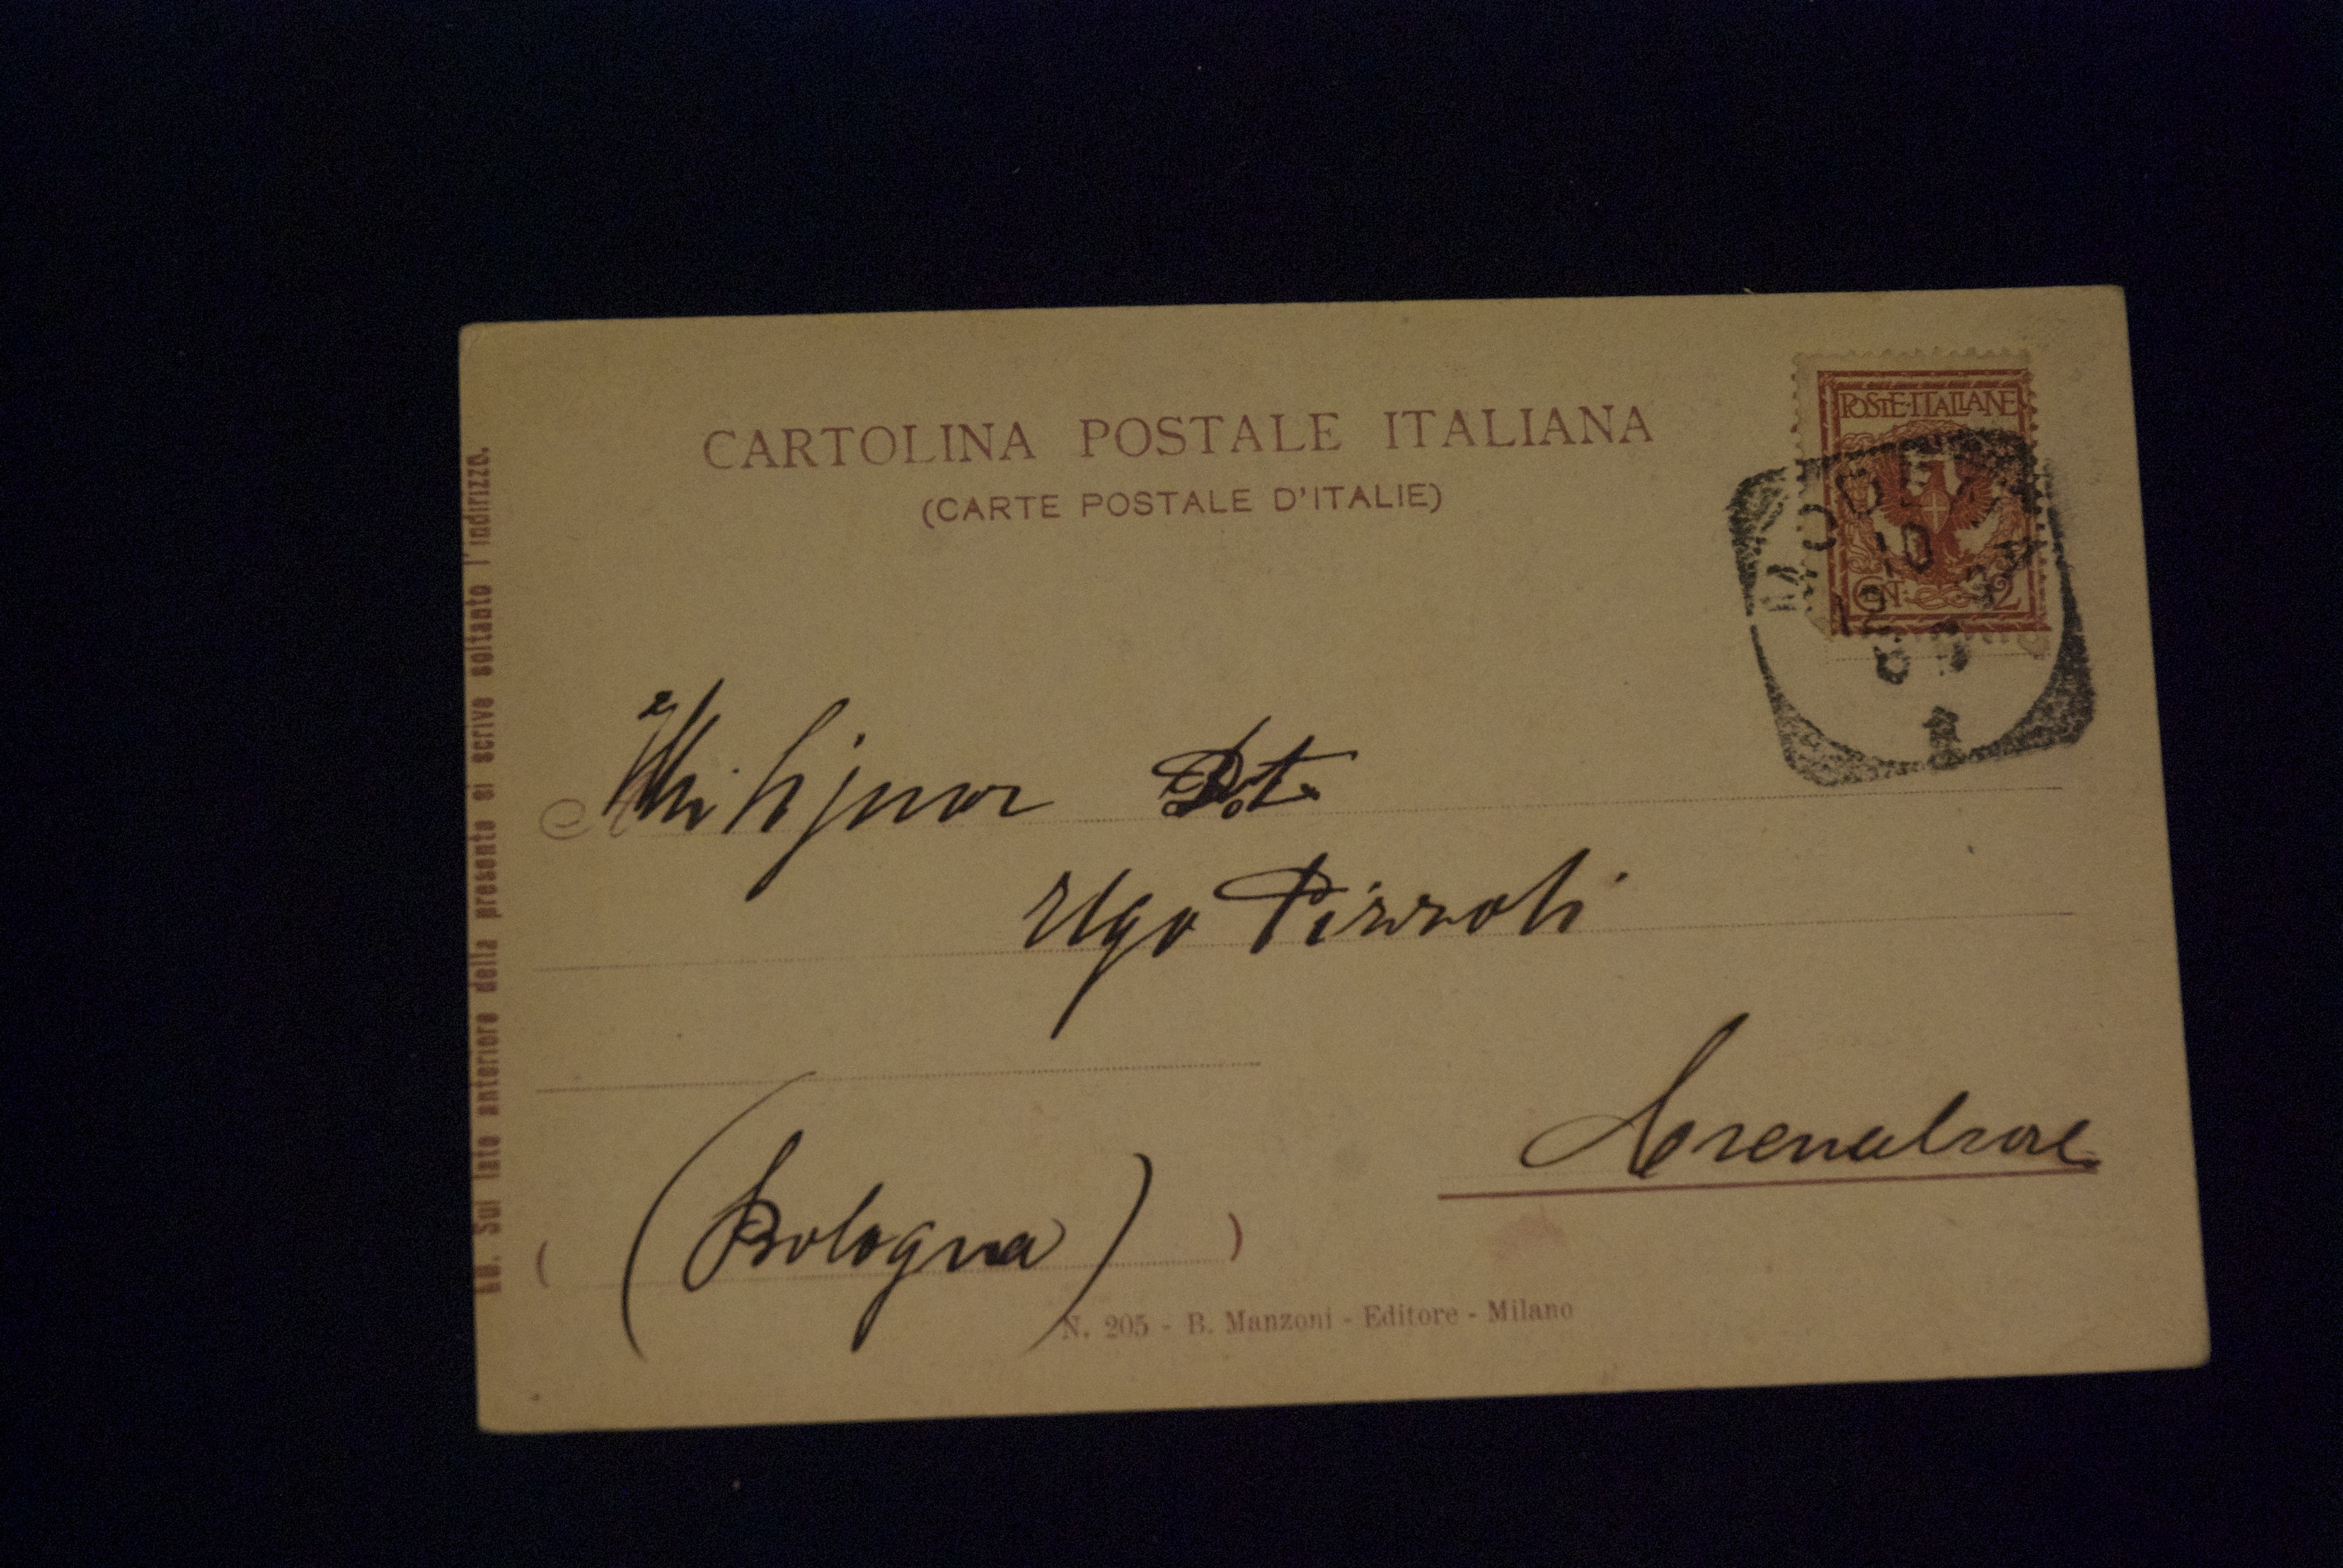 CARTOLINA POSTALE ITALIANA
(CARTE POSTALE D'ITALIE)
POSTE·ITALIANE
CENT. 2
MODENA
10
12
Dot.
Ugo Pizzoli
Crevalcore
(Bologna)
N. 205 - B. Manzoni - Editore - Milano
NB. Sul lato anteriore della presente si scrive soltanto l'indirizzo.